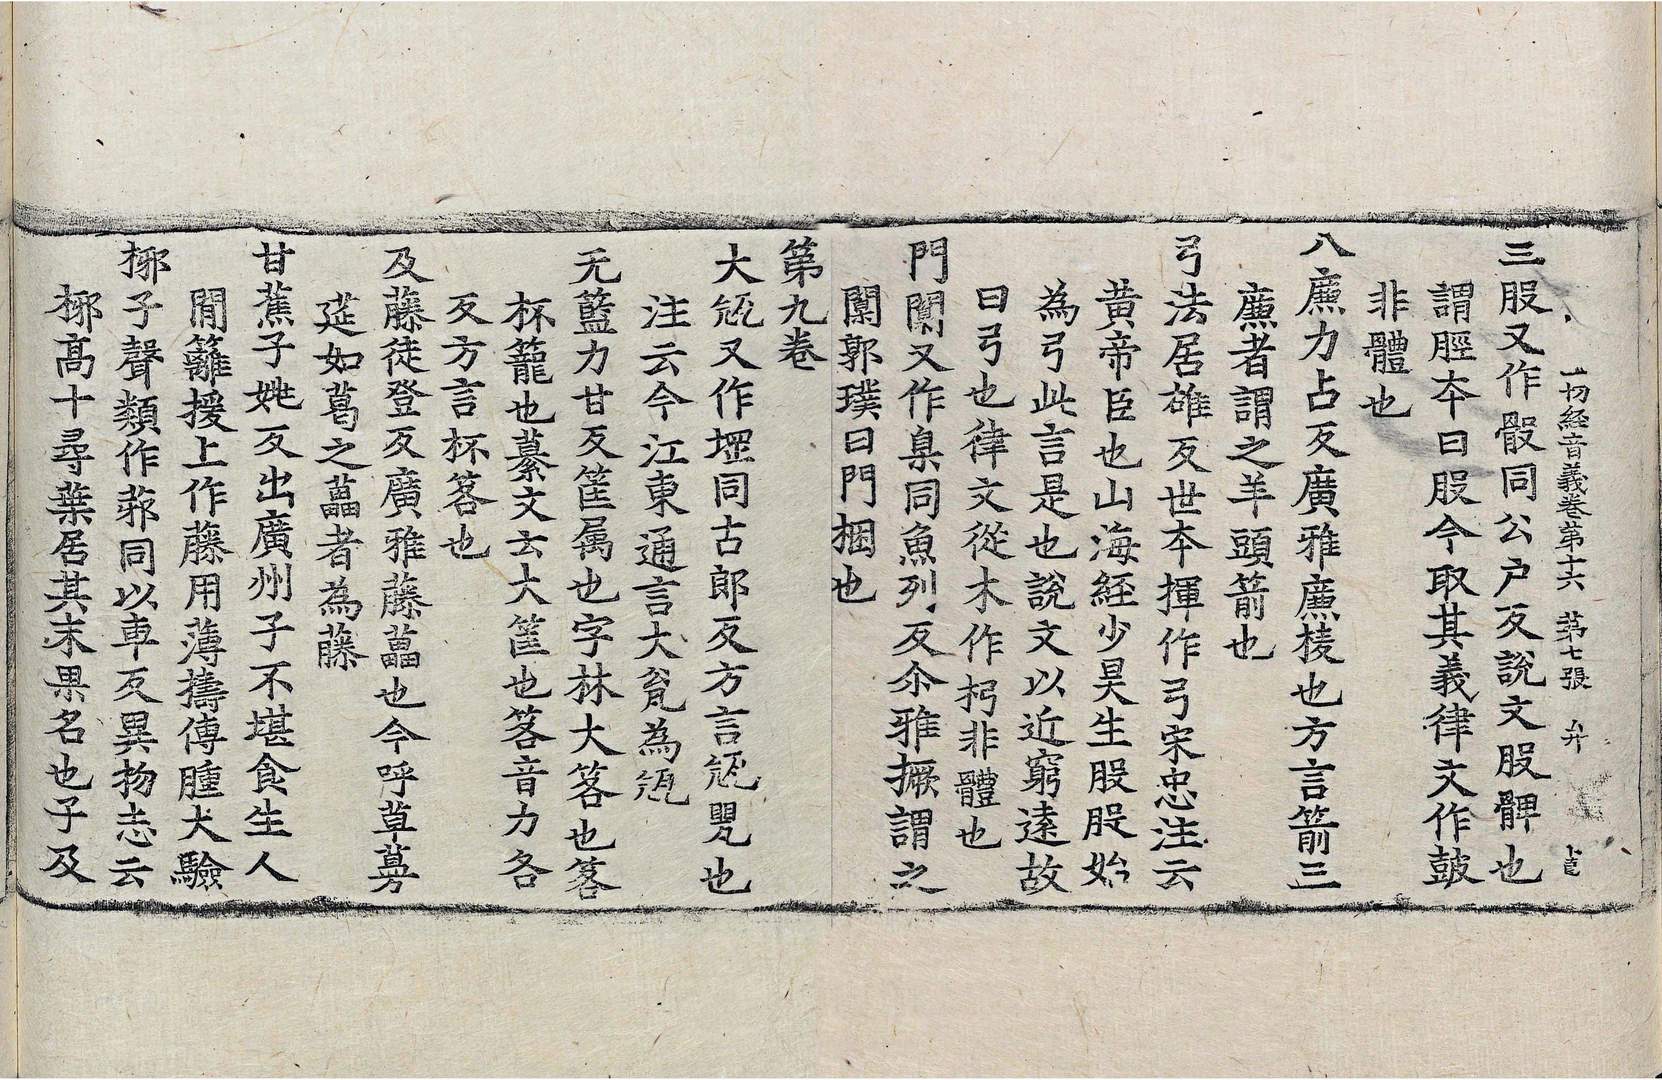 一切経音義卷第十六 第七張 廾
三股又作骰同公户反說文股髀也
謂脛夲曰股今取其義律文作鼓
非體也
八㢘力占反廣雅㢘棱也方言箭三
㢘者謂之羊頭箭也
弓法居雄反世夲揮作弓宋忠注云
黃帝臣也山海経少昊生股股始
為弓此言是也說文以近窮逺故
曰弓也律文從木作杇非體也
門閫又作臬同魚列反尒雅橛謂之
闑郭璞曰門梱也
第九卷
大㼚又作堽同古郎反方言㼚甖也
注云今江東通言大瓮為㼚
无籃力甘反筐属也字林大笿也笿
杯籠也纂文云大筐也笿音力各
反方言杯笿也
及藤徒登反廣雅藤藟也今呼草蔓
莚如葛之藟者為藤
甘蕉子姚反出廣州子不堪食生人
閒籬援上作藤用薄擣傅腫大驗
揶子聲類作䓉同以車反異物志云
揶髙十尋葉居其末果名也子及